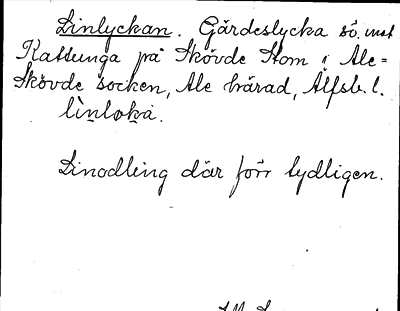 Linlyckan. Gärdeslycka sö. mot
Kattunga på Skövde Stom i Ale=
Skövde socken, Ale härad, Älfsb. l.
li̠nlo̠ka̠.
Linodling där förr tydligen.